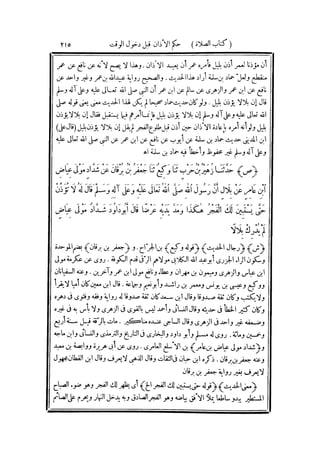 ( كتاب الصلاة ) حكم الأذان قبل دخول الوقت ٢١٥
أن مؤذنا لعمر أذن بليل فأمره عمر أن يعيد الأذان . وهذا لا يصح لأنه عن نافع عن عمر
منقطع ولعل حماد بن سلمة أراد هذا الحديث . والصحيح رواية عبيدالله بن عمر وغير واحد عن
نافع عن ابن عمر والزهرى عن سالم عن ابن عمر أن النبى صلى الله تعالى عليه وعلى آله وسلم
قال إن بلالا يؤذن بليل . ولو كان حديث حماد صحيحا لم يكن لهذا الحديث معنى يعنى قوله صلى
الله تعالى عليه وعلى آله وسلم إن بلالا يؤذن بليل فإنما أمرهم فيما يستقبل فقال إن بلالا يؤذن
بليل ولو أنه أمره بإعادة الأذان حين أذن قبل طلوع الفجر لم يقل إن بلالا يؤذن بليل (قال على)
ابن المدينى حديث حماد بن سلمة عن أيوب عن نافع عن ابن عمر عن النبى صلى الله تعالى عليه
وعلى آله وسلم غير محفوظ وأخطأ فيه حماد بن سلمة اهـ
﴿ص﴾ حَدَّثَنَا زُهَيْرُ بْنُ حَرْبٍ ثَنَا وَكِيعٌ ثَنَا جَعْفَرُ بْنُ بُرْقَانَ عَنْ شَدَّادٍ مَوْلَى عِيَاضِ
ابْنِ عَامِرٍ عَنْ بِلَالٍ أَنَّ رَسُولَ اللهِ صَلَّى اللهُ تَعَالَى عَلَيْهِ وَعَلَى آلِهِ وَسَلَّمَ قَالَ لَهُ لَا تُؤَذِّنْ
حَتَّى يَسْتَبِينَ لَكَ الْفَجْرُ هَكَذَا وَمَدَّ يَدَيْهِ عَرْضًا قَالَ أَبُو دَاوُدَ شَدَّادٌ مَوْلَى عِيَاضٍ
لَمْ يُدْرِكْ بِلَالًا
﴿ش﴾ ﴿رجال الحديث﴾ ﴿قوله وكيع﴾ بن الجراح . و ﴿جعفر بن برقان﴾ بضم الموحدة
وسكون الراء الجزرى أبو عبد الله الكلابى مولاهم الرقى قدم الكوفة . روى عن عكرمة مولى
ابن عباس والزهرى وميمون بن مهران وعطاء ونافع مولى ابن عمر وآخرين . وعنه السفيانان
ووكيع وعيسى بن يونس ومعمر بن راشد وأبو نعيم وجماعة . قال ابن معين كان أميا لا يقرأ
ولا يكتب وكان ثقة صدوقا وقال ابن سعد كان ثقة صدوقا له رواية وفقه وفتوى فى دهره
وكان كثير الخطأ فى حديثه وقال النسائى وأحمد ليس بالقوى فى الزهرى ولا بأس به فى غيره
وضعفه غير واحد فى الزهرى وقال الساجى عنده مناكير . مات بالرقة قبل سنة أربع
وخمسين ومائة . روى له مسلم وأبو داود والبخارى فى التاريخ والترمذى والنسائى وابن ماجه
و ﴿شداد مولى عياض بن عامر﴾ بن الأسلع العامرى . روى عن أبى هريرة ووابصة بن معبد
وعنه جعفر بن برقان . ذكره ابن حبان فى الثقات وقال الذهبى لا يعرف وقال ابن القطان مجهول
لا يعرف بغير رواية جعفر بن برقان
﴿معنى الحديث﴾ ﴿قوله حتى يستبين لك الفجر الخ﴾ أى يظهر لك الفجر وهو ضوء الصباح
المستطير يبدو ساطعا يملأ الأفق ببياضه وهو الفجر الصادق وبه يدخل النهار ويحرم على الصائم